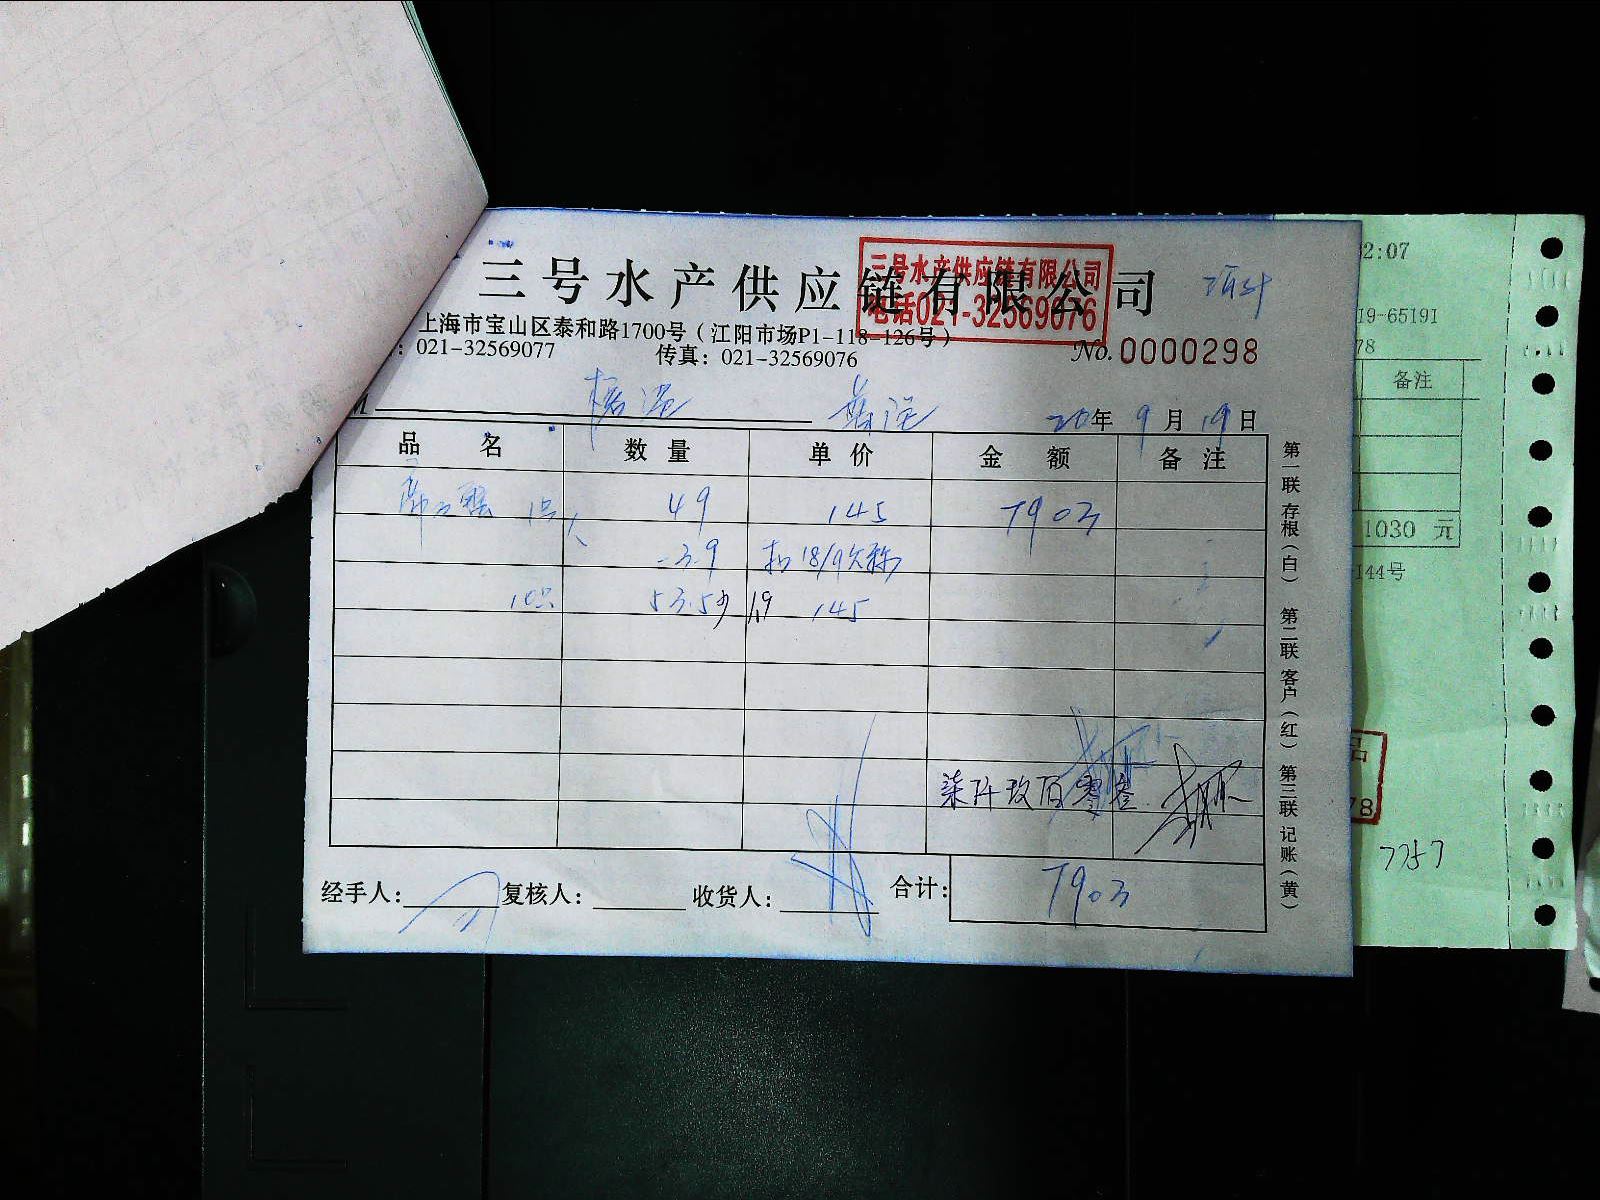 三号水产供应链有限公司
三号水产供应链有限公司
电话021-32569076
上海市宝山区泰和路1700号（江阳市场P1-118-126号）
：021-32569077 传真：021-32569076
No.0000298
20年9月19日
品名 数量 单价 金额 备注
49 145 7903
-3.9 扣18/9欠称
10只 53.5 145
柒仟玖佰零叁
经手人： 复核人： 收货人： 合计：7903
第一联存根（白） 第二联客户（红） 第三联记账（黄）
2:07
19-65191
78
备注
1030 元
144号
品
78
7357